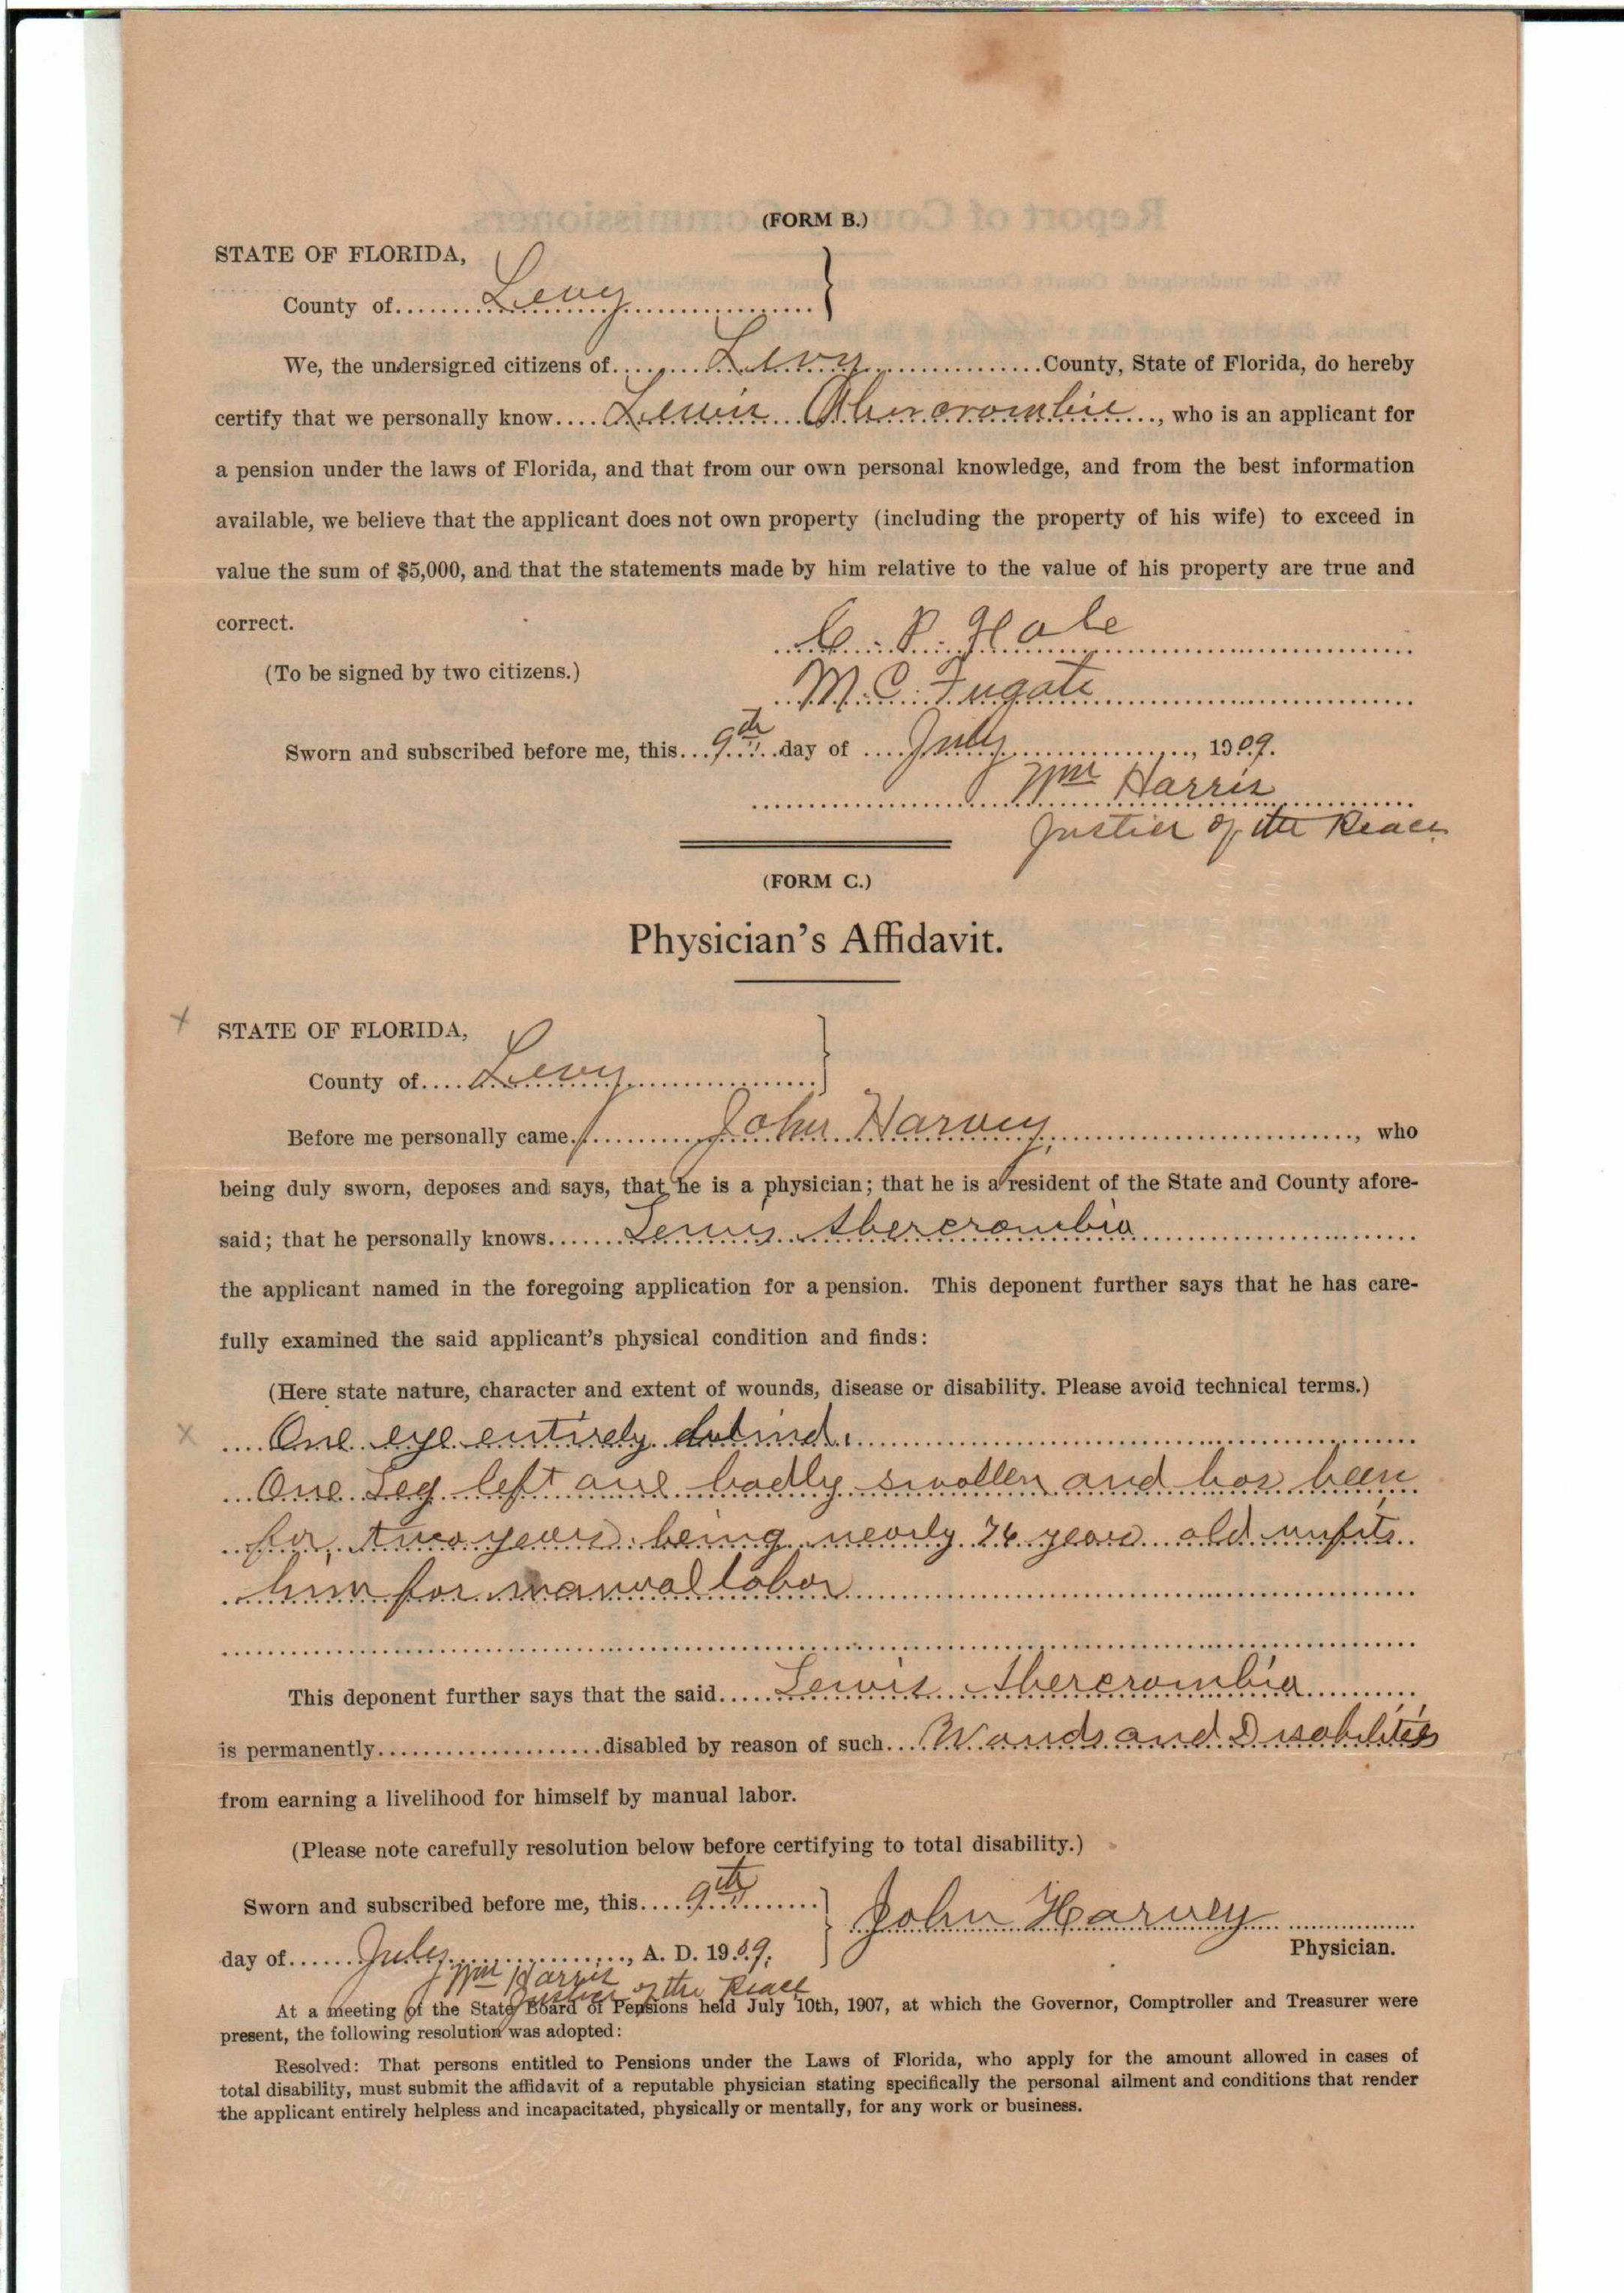 (FORM B.)
STATE OF FLORIDA,
County of Levy
We, the undersigned citizens of Levy County, State of Florida, do hereby
certify that we personally know Lewis Abercrombie, who is an applicant for
a pension under the laws of Florida, and that from our own personal knowledge, and from the best information
available, we believe that the applicant does not own property (including the property of his wife) to exceed in
value the sum of $5,000, and that the statements made by him relative to the value of his property are true and
correct.
C. P. Hale
(To be signed by two citizens.)
M. C. Fugate
Sworn and subscribed before me, this 9th day of July, 1909.
Wm Harris
Justice of the Peace
(FORM C.)
Physician's Affidavit.
x STATE OF FLORIDA,
County of Levy
Before me personally came John Harvey, who
being duly sworn, deposes and says, that he is a physician; that he is a resident of the State and County afore-
said; that he personally knows Lewis Abercrombia
the applicant named in the foregoing application for a pension. This deponent further says that he has care-
fully examined the said applicant's physical condition and finds:
(Here state nature, character and extent of wounds, disease or disability. Please avoid technical terms.)
x One eye entirely blind.
One Leg left one badly swollen and has been
for two years being nearly 76 years old unfits
him for manual labor
This deponent further says that the said Lewis Abercrombia
is permanently disabled by reason of such Wonds and Disabilities
from earning a livelihood for himself by manual labor.
(Please note carefully resolution below before certifying to total disability.)
Sworn and subscribed before me, this 9th
John Harvey
day of July, A. D. 1909.
Physician.
Wm Harris
Justice of the Peace
At a meeting of the State Board of Pensions held July 10th, 1907, at which the Governor, Comptroller and Treasurer were
present, the following resolution was adopted:
Resolved: That persons entitled to Pensions under the Laws of Florida, who apply for the amount allowed in cases of
total disability, must submit the affidavit of a reputable physician stating specifically the personal ailment and conditions that render
the applicant entirely helpless and incapacitated, physically or mentally, for any work or business.